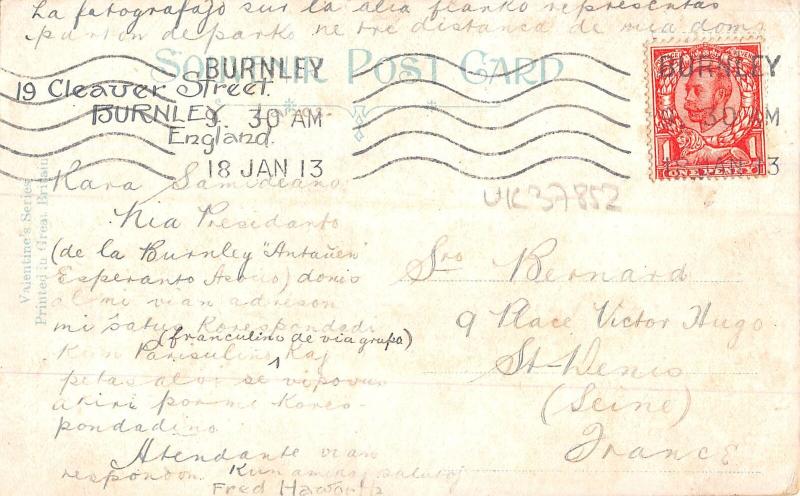 La fotografaĵo sur la alia flanko representas
parton de parko ne tre distanca de mia domo
SOUVENIR POST CARD
BURNLEY
9. 30 AM
18 JAN 13
BURNLEY
9. 30 AM
18 JAN 13
ONE PENNY
19 Cleaver Street.
BURNLEY
England.
UK37852
Valentine's Series
Printed in Great Britain
Kara Samideano
Nia Presidanto
(de la Burnley "Antaŭen"
Esperanto Asocio) donis
al mi vian adreson
mi ŝatus Korespondadi
(franculino de via grupo)
Kun Parisulino Kaj
petas al vi se vi povus
akiri por mi Kores-
pondadino.
Atendante vian
respondon. Kun amikaj salutoj
Fred Haworth
Sro Bernard
9 Place Victor Hugo
St-Denis
(Seine)
France